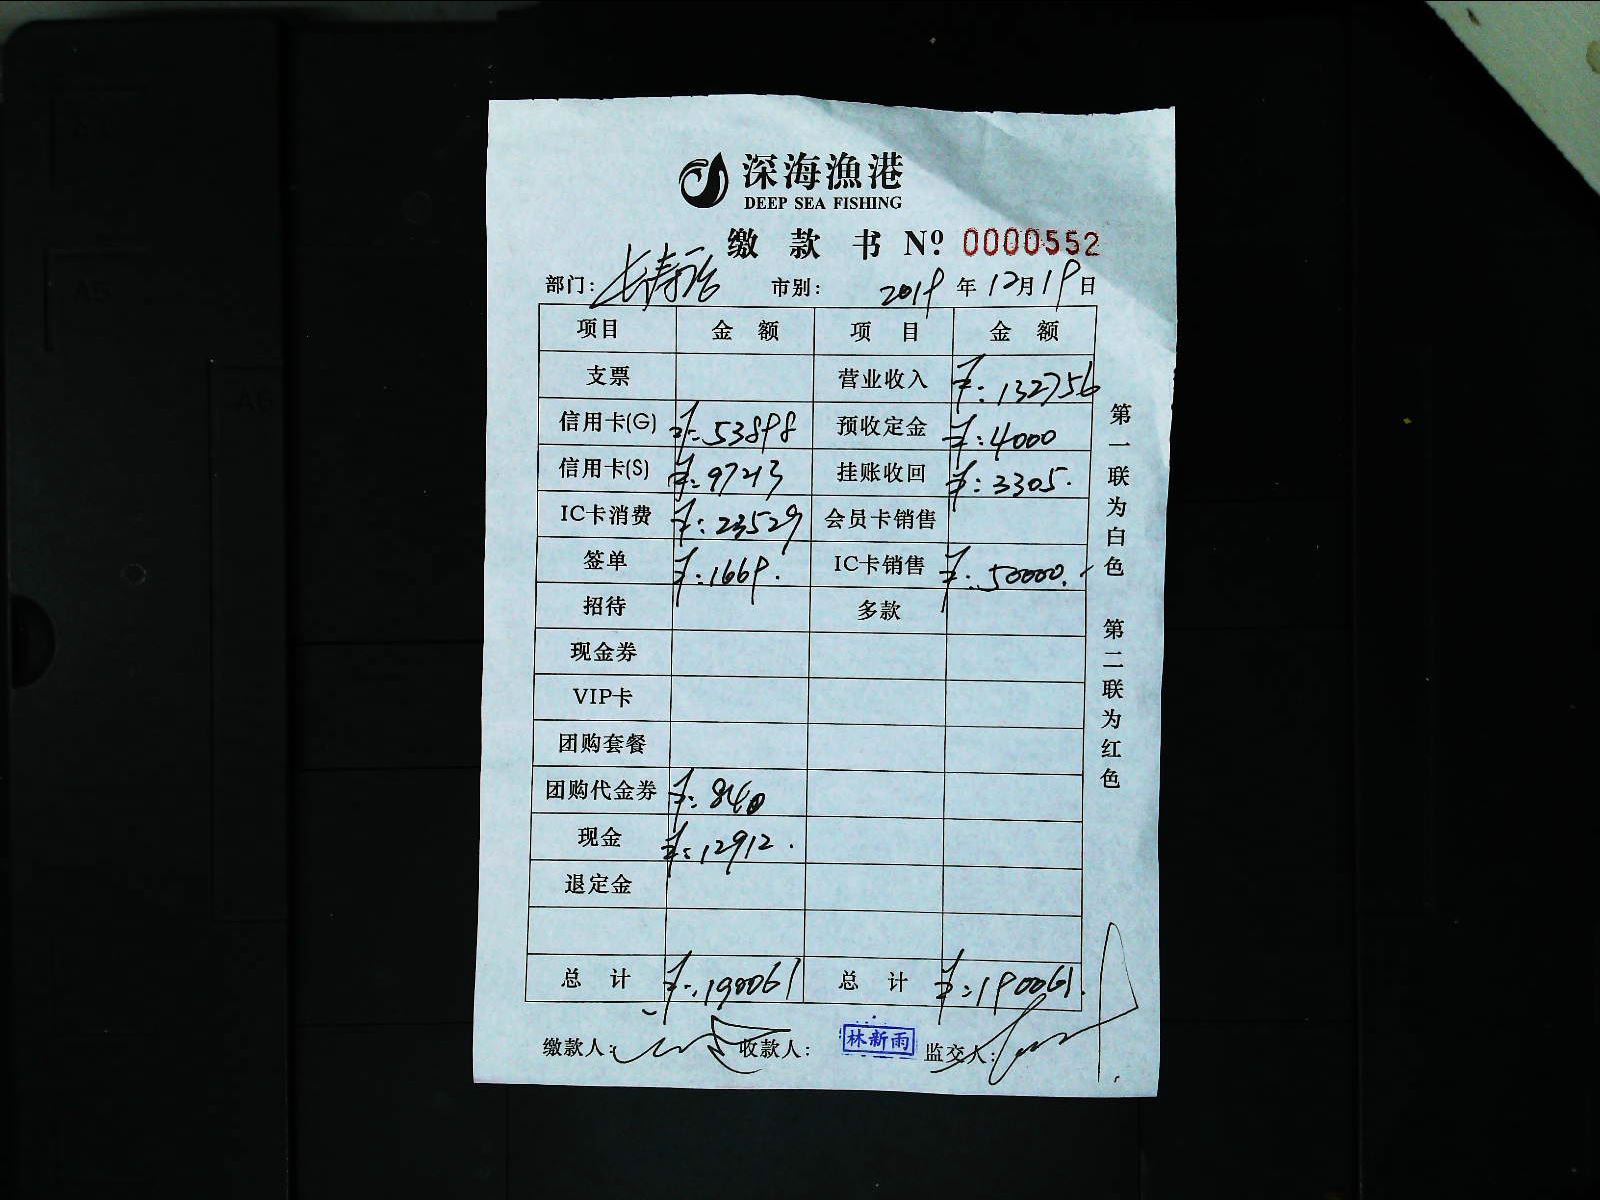 深海漁港
DEEP SEA FISHING
缴款书 Nº 0000552
部门: 长寿路 市别: 2019 年 12 月 19 日
项目 金额 项目 金额
支票 营业收入 ¥:132756
信用卡(G) ¥:53898 预收定金 ¥:4000
信用卡(S) ¥:97213 挂账收回 ¥:3305.
IC卡消费 ¥:23529 会员卡销售
签单 ¥:1669. IC卡销售 ¥:50000.
招待 多款
现金券
VIP卡
团购套餐
团购代金券 ¥:840
现金 ¥:12912.
退定金
总计 ¥:190061 总计 ¥:190061.
缴款人: 收款人: 林新雨 监交人:
第一联为白色 第二联为红色